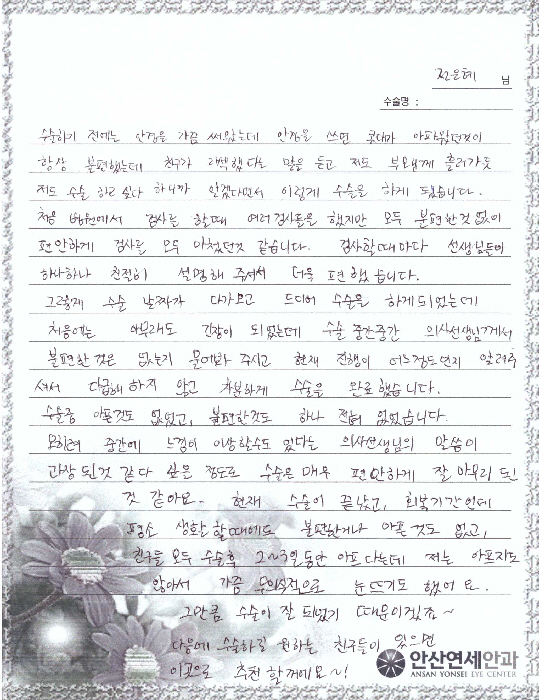 전은혜 님
수술명 :
수술하기 전에는 안경을 가끔 써왔는데 안경을 쓰면 콧대가 아파왔던것이
항상 불편했는데 친구가 라섹했다는 말을 듣고 저도 부모님께 흘러가듯
저도 수술 하고 싶다 하니까 알겠다면서 이렇게 수술을 하게 됐습니다.
처음 병원에서 검사를 할때 여러검사들을 했지만 모두 불편한것 없이
편안하게 검사를 모두 마쳤던것 같습니다. 검사할때마다 선생님들이
하나하나 친절히 설명해 주셔서 더욱 편했습니다.
그렇게 수술 날짜가 다가오고 드디어 수술을 하게되었는데
처음에는 아무래도 긴장이 되었는데 수술 중간중간 의사선생님께서
불편한것은 없는지 물어봐 주시고 현재 진행이 어느정도인지 알려주
셔서 다급해 하지 않고 차분하게 수술을 완료했습니다.
수술중 아픈것도 없었고, 불편한것도 하나 전혀 없었습니다.
오히려 중간에 느낌이 이상할수도 있다는 의사선생님의 말씀이
과장 된것 같다 싶은 정도로 수술은 매우 편안하게 잘 마무리 된
것 같아요. 현재 수술이 끝났고, 회복기간인데
평소 생활 할때에도 불편하거나 아픈것도 없고,
친구들 모두 수술후 2~3일동안 아프다는데 저는 아프지도
않아서 가끔 무의식적으로 눈뜨기도 했어요.
그만큼 수술이 잘 되었기 때문이겠죠~
다음에 수술하길 원하는 친구들이 있으면
이곳으로 추천 할꺼에요~!
안산연세안과
ANSAN YONSEI EYE CENTER